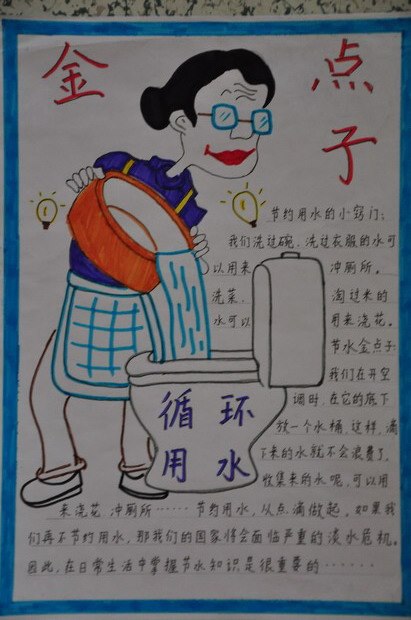 金点子
节约用水的小窍门:
我们洗过碗、洗过衣服的水可
以用来冲厕所。
洗菜、淘过米的
水可以用来浇花。
节水金点子:
我们在开空
调时,在它的底下
放一个水桶,这样,滴
下来的水就不会浪费了,
收集来的水呢,可以用
来浇花、冲厕所……节约用水,从点滴做起,如果我
们再不节约用水,那我们的国家将会面临严重的淡水危机。
因此,在日常生活中掌握节水知识是很重要的……
循环
用水